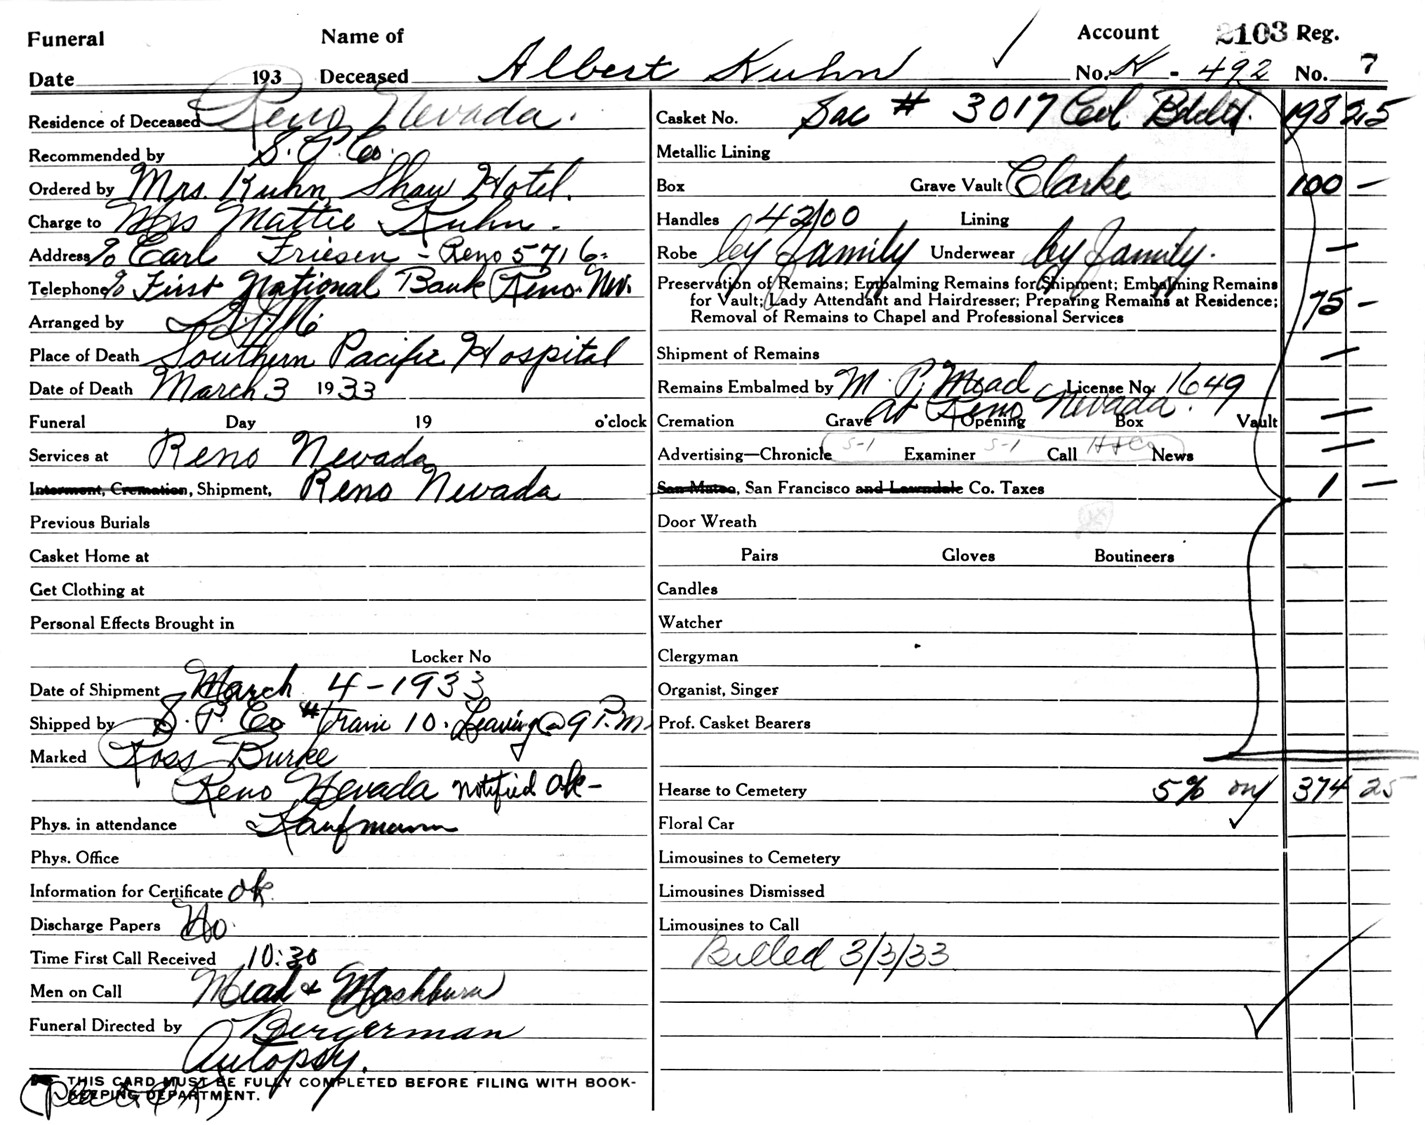 Funeral Name of Account 2103 Reg.
Date 193 Deceased Albert Kuhn No. K - 492 No. 7
Residence of Deceased Reno Nevada.
Recommended by S. P. Co.
Ordered by Mrs. Kuhn Shaw Hotel.
Charge to Mrs Mattie Kuhn.
Address % Earl Friesen - Reno 5716-
Telephone % First National Bank Reno. Nev.
Arranged by
Place of Death Southern Pacific Hospital
Date of Death March 3 1933
Funeral Day 19 o'clock
Services at Reno Nevada
Interment, Cremation, Shipment, Reno Nevada
Previous Burials
Casket Home at
Get Clothing at
Personal Effects Brought in
Locker No
Date of Shipment March 4-1933
Shipped by S. P. Co # Train 10. Leaving @ 9 P.M.
Marked Ross Burke
Reno Nevada notified ok-
Phys. in attendance Kaufmann
Phys. Office
Information for Certificate ok
Discharge Papers No.
Time First Call Received 10:30
Men on Call Mead & Mashburn
Funeral Directed by Bergerman
Autopsy.
THIS CARD MUST BE FULLY COMPLETED BEFORE FILING WITH BOOK-
KEEPING DEPARTMENT.
Casket No. Sac # 3017 198 25
Metallic Lining
Box Grave Vault Clarke 100 —
Handles 42/00 Lining
Robe by family Underwear by family. —
Preservation of Remains; Embalming Remains for Shipment; Embalming Remains
for Vault; Lady Attendant and Hairdresser; Preparing Remains at Residence; 75 —
Removal of Remains to Chapel and Professional Services
Shipment of Remains —
Remains Embalmed by M. P. Mead License No. 1649
at Reno Nevada.
Cremation Grave Opening Box Vault —
Advertising—Chronicle S-1 Examiner S-1 Call News —
San Mateo, San Francisco and Lawndale Co. Taxes 1 —
Door Wreath
Pairs Gloves Boutineers
Candles
Watcher
Clergyman
Organist, Singer
Prof. Casket Bearers
Hearse to Cemetery 5% on 374 25
Floral Car
Limousines to Cemetery
Limousines Dismissed
Limousines to Call
Billed 3/3/33